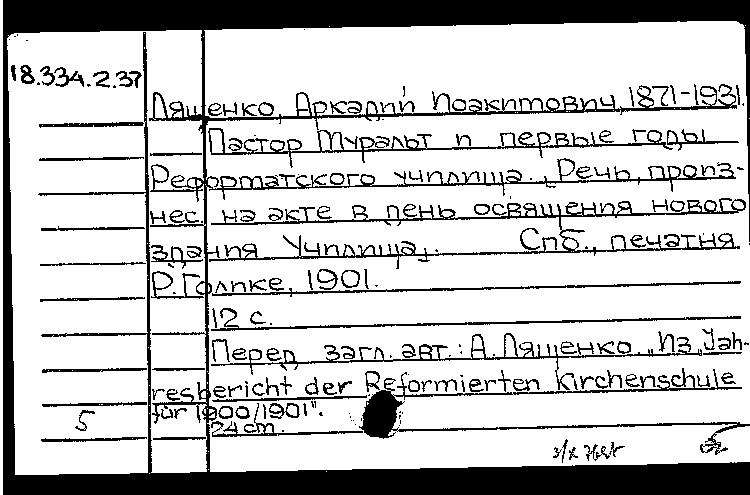 18.334.2.37
Лященко, Аркадий Иоакимович, 1871-1931.
Пастор Муральт и первые годы
Реформатского училища. „Речь, произ-
нес. на акте в день освящения нового
здания Училища„. Спб., печатня
Р.Голике, 1901.
12 с.
Перед загл. авт.: А.Лященко „Из „Jah-
resbericht der Reformierten Kirchenschule
für 1900/1901".
5
24 cm.